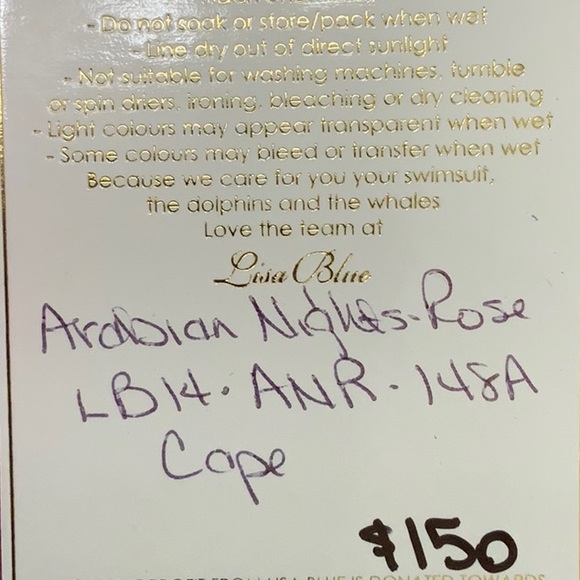 - Do not soak or store/pack when wet
- Line dry out of direct sunlight
- Not suitable for washing machines, tumble
or spin driers, ironing, bleaching or dry cleaning
- Light colours may appear transparent when wet
- Some colours may bleed or transfer when wet
Because we care for you your swimsuit,
the dolphins and the whales
Love the team at
Lisa Blue
Arabian Nights-Rose
LB14·ANR·148A
Cape
$150
FROM LISA BLUE IS DONATED TOWARDS